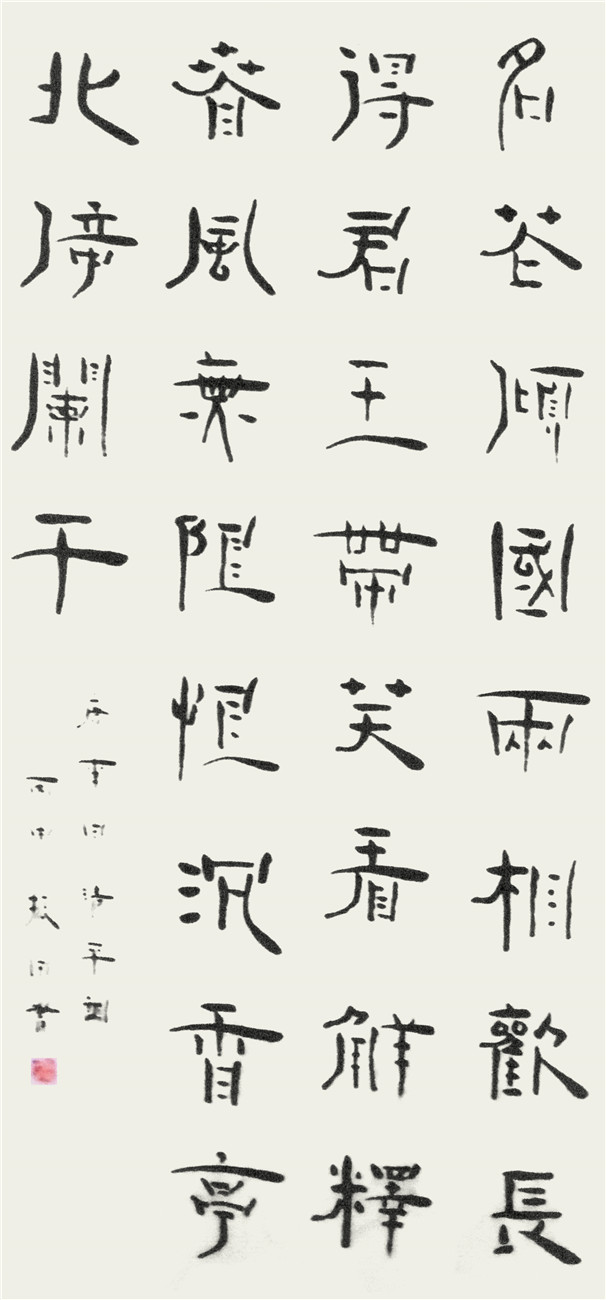 名花傾國兩相歡長
得君王帶笑看解釋
春風無限恨沉香亭
北倚闌干
唐李白清平調
丙申